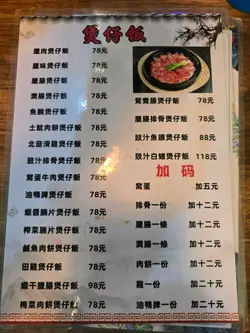 煲仔飯
臘肉煲仔飯 78元
臘味煲仔飯 78元
臘腸煲仔飯 78元
潤腸煲仔飯 78元
魚腩煲仔飯 78元
土魷肉餅煲仔飯 78元
北菇滑雞煲仔飯 78元
豉汁排骨煲仔飯 78元
窩蛋牛肉煲仔飯 78元
油鴨脾煲仔飯 78元
蝦醬腩片煲仔飯 78元
榨菜腩片煲仔飯 78元
鹹魚肉餅煲仔飯 78元
田雞煲仔飯 78元
蝦干臘腸煲仔飯 98元
梅菜肉餅煲仔飯 78元
鴛鴦腸煲仔飯 78元
臘腸排骨煲仔飯 78元
豉汁魚頭煲仔飯 88元
豉汁白鱔煲仔飯 118元
加码
窩蛋 加五元
排骨一份 加十二元
臘腸一條 加十二元
潤腸一條 加十二元
肉餅一份 加十二元
雞一份 加十二元
油鴨脾一份 加十二元